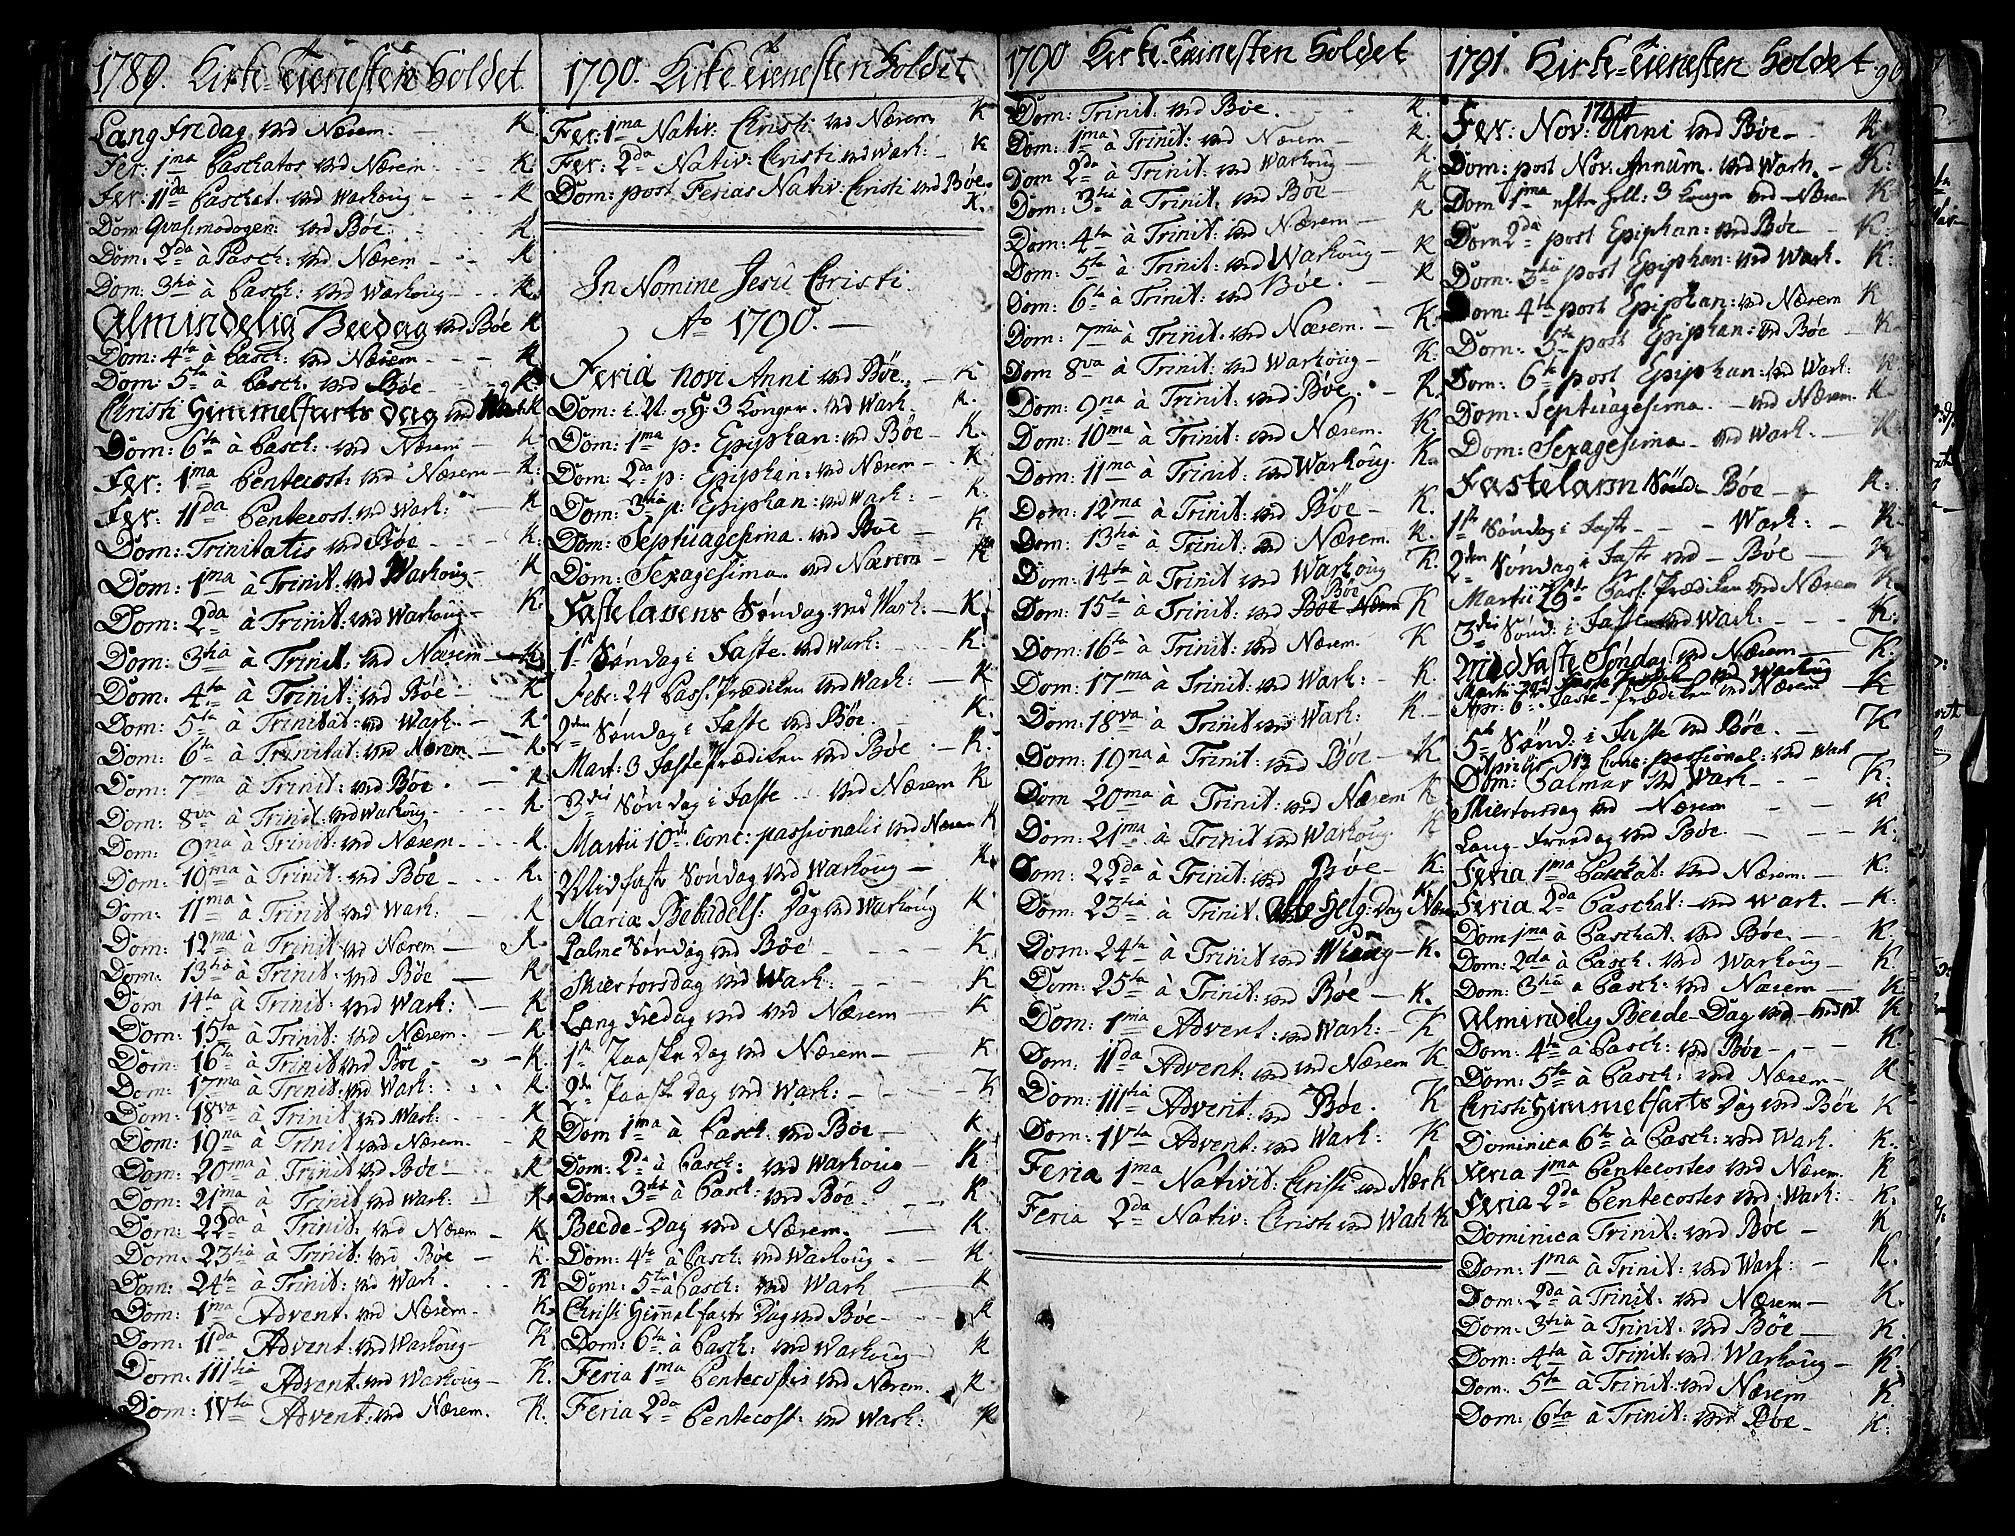 1789. Kirke-Tienesten holdet
Langfredag ved Nærem. — K.
Fer: 1ma Paschatos ved Nærem - - - K.
Fer: 11da Paschat: ved Warhoug - - - K
Dom Qvasimodogen: ved Bøe. - K
Dom: 2da à Pasch: ved Nærem - - - K
Dom: 3tia à Pasch: ved Warhoug - - - K.
Almindelig Beedag ved Bøe K
Dom: 4ta à Pasch: ved Nærem - - - K
Dom: 5ta à Pasch: ved Bøe - - - K.
Christi Himmelfarts dag ved Warh K
Dom: 6ta à Pasch: ved Nærem - K.
Fer: 1ma Pentecost: ved Nærem — K.
Fer: 11da Pentecost: ved Warh: - K
Dom: Trinitatis ved Bøe - - - K.
Dom: 1ma à Trinit: ved Warhoug - K
Dom: 2da à Trinit: ved Warhoug — K.
Dom: 3tia à Trinit: ved Nærem — K
Dom: 4ta à Trinit: ved Bøe - K
Dom: 5ta à Trinitat: ved Wark - - K
Dom: 6ta à Trinitat: ved Nærem. — K.
Dom: 7ma à Trinit: ved Bøe. - K
Dom: 8va à Trinit: ved Warhoug. - - K.
Dom: 9na à Trinit: ved Nærem - - - K.
Dom: 10ma à Trinit: ved Bøe - - - K.
Dom: 11ma à Trinit: ved Wark: - K
Dom: 12ma à Trinit: ved Nærem — K.
Dom: 13tia à Trinit: ved Bøe — K
Dom 14ta à Trinit: ved Wark: — K
Dom: 15ta à Trinit: ved Nærem. - K.
Dom: 16ta à Trinit: ved Bøe - - - K.
Dom: 17ma à Trinit: ved Wark: - - K.
Dom: 18va à Trinit: ved Wark: - K
Dom: 19na à Trinit: ved Nærem. - K
Dom: 20ma à Trinit: ved Bøe - K
Dom: 21ma à Trinit: ved Wark: - K.
Dom: 22da à Trinit: ved Nærem - K
Dom: 23tia à Trinit: ved Bøe — K.
Dom: 24ta à Trinit: ved Wark. - - K
Dom: 1ma Advent: ved Nærem. - K.
Dom: 11da Advent: ved Warhoug - K.
Dom: 111tia Advent: ved Warhoug — K.
Dom: 1Vta Advent: ved Nærem. K.
1790. Kirke Tienesten holdet
Fer: 1ma Nativ: Christi ved Nærem K
Fer: 2da Nativ: Christi ved Wark: - K
Dom: post Ferias Nativ: Christi ved Bøe.
K.
In Nomine Jesu Christi
Ao 1790. —
Feria novi Anni ved Bøe. — K
Dom: i: N: og H: 3 Konger. ved Wark. K.
Dom: 1ma p: Epiphan: ved Bøe — K.
Dom: 2da p: Epiphan: ved Nærem - K
Dom: 3tia p: Epiphan: ved Wark: - K.
Dom: Septuagesima. ved Bøe — K
Dom: Sexagesima. ved Nærem — K
Fastelavens Søndag ved Wark: — K.
1ste Søndag i Faste ved Wark: - - K.
Febr: 24 Pass. Prædiken ved Wark: — K
2den Søndag i Faste ved Bøe. - K.
Mart: 3 Faste Prædiken ved Bøe - — K.
3die Søndag i Faste ... ved Nærem K
Martii 10de conc: passionalis ved Nærem K
Midfaste Søndag ved Warhoug — K.
Mariæ Bebudels: Dag ved Warhoug K
Palme Søndag ved Bøe - - - K.
Skiertorsdag ved Wark: - - - K
Lang Fredag ved ved Nærem — K
1ste Paaske Dag ved Nærem — K
2den Paaske Dag ved Wark: - - - K
Dom 1ma à Pasch: ved Bøe — K.
Dom: 2da à Pasch: ved Warhoug — K.
Dom: 3tia à Pasch: ved Bøe. - - K
Beede-Dag ved Nærem. — K.
Dom: 4ta à Pasch: ved Warhoug - K
Dom: 5ta à Pasch: ved Wark — K
Christi Himmelfarts Dag ved Bøe - - - K
Dom: 6ta à Pasch: ved Warhoug — K
Feria 1ma Pentecostis ved Nærem. K.
Feria 2da Pentecost: ved Wark: K
1790 Kirke-Tienesten holdet
Dom: Trinit: ved Bøe. - K.
Dom: 1ma à Trinit: ved Nærem — K.
Dom 2da à Trinit: ved Warhoug — K.
Dom: 3tia à Trinit: ved Bøe — K
Dom: 4ta à Trinit: ved Nærem — K
Dom: 5ta à Trinit: ved Warhoug — K
Dom: 6ta à Trinit: ved Bøe. - K
Dom: 7ma à Trinit: ved Nærem. — K.
Dom 8va à Trinit: ved Warhoug — K.
Dom: 9na à Trinit: ved Bøe. - K.
Dom: 10ma à Trinit: ved Nærem. K.
Dom: 11ma à Trinit: ved Warhoug. K.
Dom: 12ma à Trinit: ved Bøe — K.
Dom: 13tia à Trinit: ved Nærem. K.
Dom: 14ta à Trinit: ved Warhoug K.
Bøe
Dom: 15ta à Trinit: ved Bøe Nærem K
Dom: 16ta à Trinit: ved Nærem. K
Dom: 17ma à Trinit: ved Wark: - K.
Dom: 18va à Trinit: ved Wark: K. -
Dom: 19na à Trinit: ved Bøe — K
Dom 20ma à Trinit: ved Nærem K
Dom: 21ma à Trinit: ved Warhoug. K
Dom: 22da à Trinit: ved Bøe — K.
Dom: 23tia à Trinit. Alle Helg: Dag Nærem K
Dom: 24ta à Trinit: ved Warhoug — K.
Dom: 25ta à Trinit: ved Bøe — K.
Dom: 1ma Advent: ved Wark: — K
Dom: 11da Advent: ved Nærem K
Dom: 111tia Advent: ved Bøe. K
Dom: 1Vta Advent: ved Wark: K
Feria 1ma Nativit: Christi ved Nær K
Feria 2da Nativ: Christi ved Wark K
1791. Kirke-Tienesten holdet 90
1791
Fer: Nov: Anni ved Bøe — K
Dom: post Nov. Annum. ved Wark. — K.
Dom 1ma efter Hell: 3 Konger ved Nærem K
Dom 2da post Epiphan: ved Bøe — K.
Dom: 3tia post Epiphan: ved Wark. K.
Dom: 4ta post Epiphan: ved Nærem K
Dom: 5ta post Epiphan: ved Bøe — K.
Dom: 6ta post Epiphan: ved Wark: K
Dom: Septuagesima. — ved Nærem K
Dom: Sexagesima — ved Wark. — K.
Fastelavn Sönd: Bøe — K.
1ste Søndag i Faste - - - Wark: — K.
2den Søndag i Faste ved — Bøe — K
Martii 29de Pass: Prædiken ved Nærem K
3die Sønd: i Faste ved Wark: - - - K.
Midfaste Søndag ved Nærem — K.
Apr: 6te Faste-prædiken ved Nærem — K
5te Sønd: i Faste ved Bøe. - K
Aprilis 13 Conc: passional: ved Wark
Dom: Palmar ved Wark — K.
Skiertorsdag ved Nærem - - K
Lang-Freedag ved Bøe. - - - K.
Feria 1ma Paschat: ved Nærem. — K.
Feria 2da Paschat: — ved Wark. — K.
Dom 1ma à Paschat. ved Bøe. — K.
Dom: 2da à Pasch: ved Warhoug — K.
Dom: 3tia à Pasch: ved Nærem — K.
Almindelig Beede-Dag ved K
Dom: 4ta à Pasch: ved Bøe - - - K.
Dom: 5ta à Pasch: ved Nærem — K
Christi Himmelfarts Dag ved Bøe K
Dominica 6ta à Pasch: ved Wark. K.
Feria 1ma Pentecostes ved Nærem. K
Feria 2da Pentecostes ved Wark: K.
Dominica Trinit: ved Bøe — K
Dom: 1ma à Trinit: ved Wark: - K.
Dom: 2da à Trinit: ved Nærem — K.
Dom: 3tia à Trinit: ved Bøe — K.
Dom: 4ta à Trinit: ved Warhoug — K.
Dom: 5ta à Trinit: ved Nærem K.
Dom: 6ta à Trinit: ved Bøe — K.